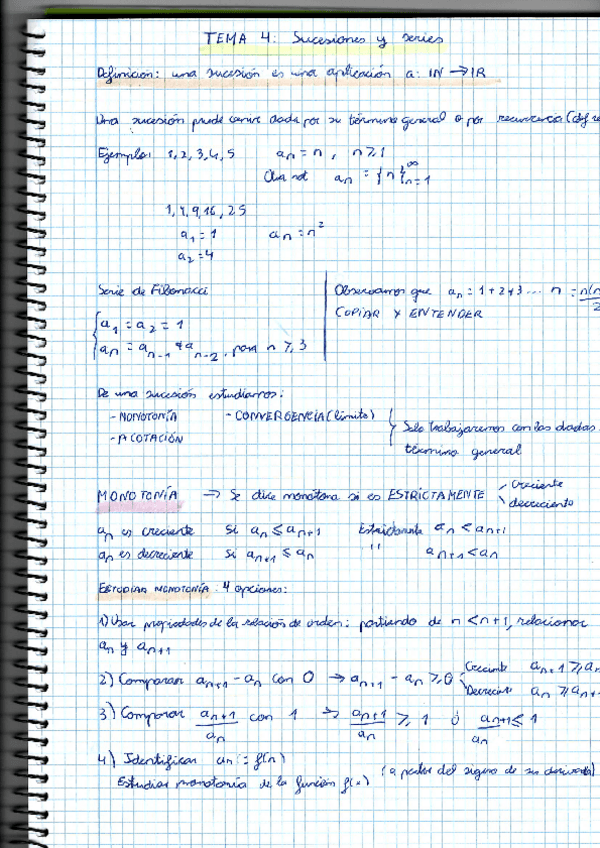 TEMA 4: Sucesiones y series
Definición: una sucesión es una aplicación a: IN → IR
Una sucesión puede venir dada por su término general o por recurrencia (def re
Ejemplos 1, 2, 3, 4, 5 an = n , n ≥ 1
Otra not an = {n}∞n=1
1, 4, 9, 16, 25
a1 = 1 an = n²
a2 = 4
Serie de Fibonacci
{a1 = a2 = 1
an = an-1 + an-2, para n ≥ 3
Observamos que an = 1+2+3... n = n(n
2
COPIAR Y ENTENDER
De una sucesión estudiamos:
- MONOTONÍA - CONVERGENCIA (límite)
- ACOTACIÓN
Solo trabajaremos con las dadas
término general
MONOTONÍA → Se dice monótona si es ESTRICTAMENTE creciente
decreciente
an es creciente si an ≤ an+1 Estrictamente an < an+1
an es decreciente si an+1 ≤ an '' an+1 < an
ESTUDIAR MONOTONÍA: 4 opciones:
1) Usar propiedades de la relación de orden: partiendo de n < n+1, relacionar
an y an+1
2) Comparar an+1 - an con 0 → an+1 - an ≥ 0 Creciente an+1 ≥ an
Decrece an ≥ an+
3) Comparar an+1/an con 1 → an+1/an ≥ 1 ó an+1/an ≤ 1
4) Identificar an = f(n)
Estudiar monotonía de la función f(x) (a partir del signo de su derivada)